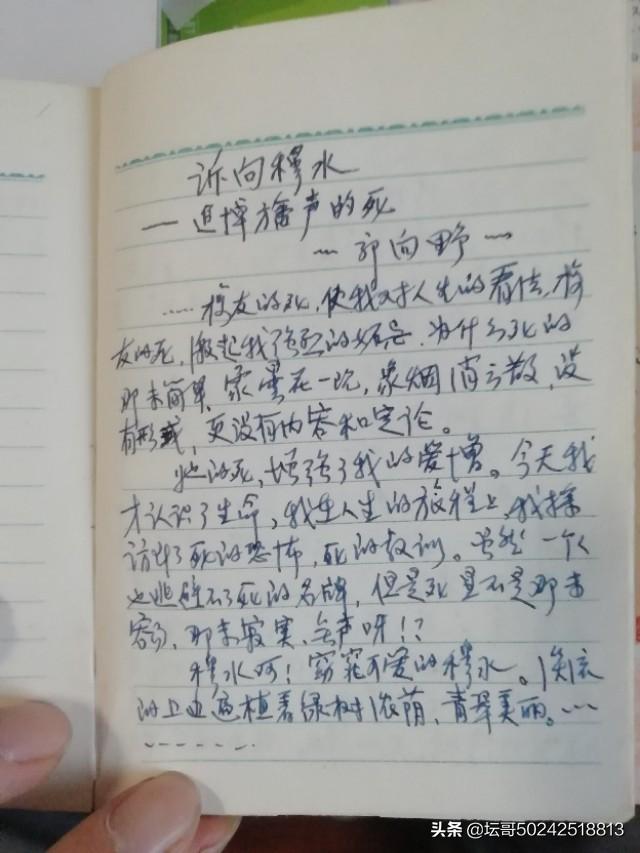 诉向穆水
— 追悼播声的死
~ 郭向野 ~
…… 校友的死，使我对人生的看法，校
友的死，激起我强烈的 为什么死的
那末简单，象雪花一현，象烟消云散，没
有形或，更没有内容和定论。
她的死，增强了我的爱憎。今天我
才认识了生命，我在人生的旅程上，我探
访到了死的恐怖，死的教训。虽然一个人
也逃避不了死的名牌，但是死是不是那末
容易、那末寂寞、无声呀！？
穆水呵！窈窕可爱的穆水。
的上 植着绿树浓荫，青翠美丽。……
……
头条 @坛哥50242518813